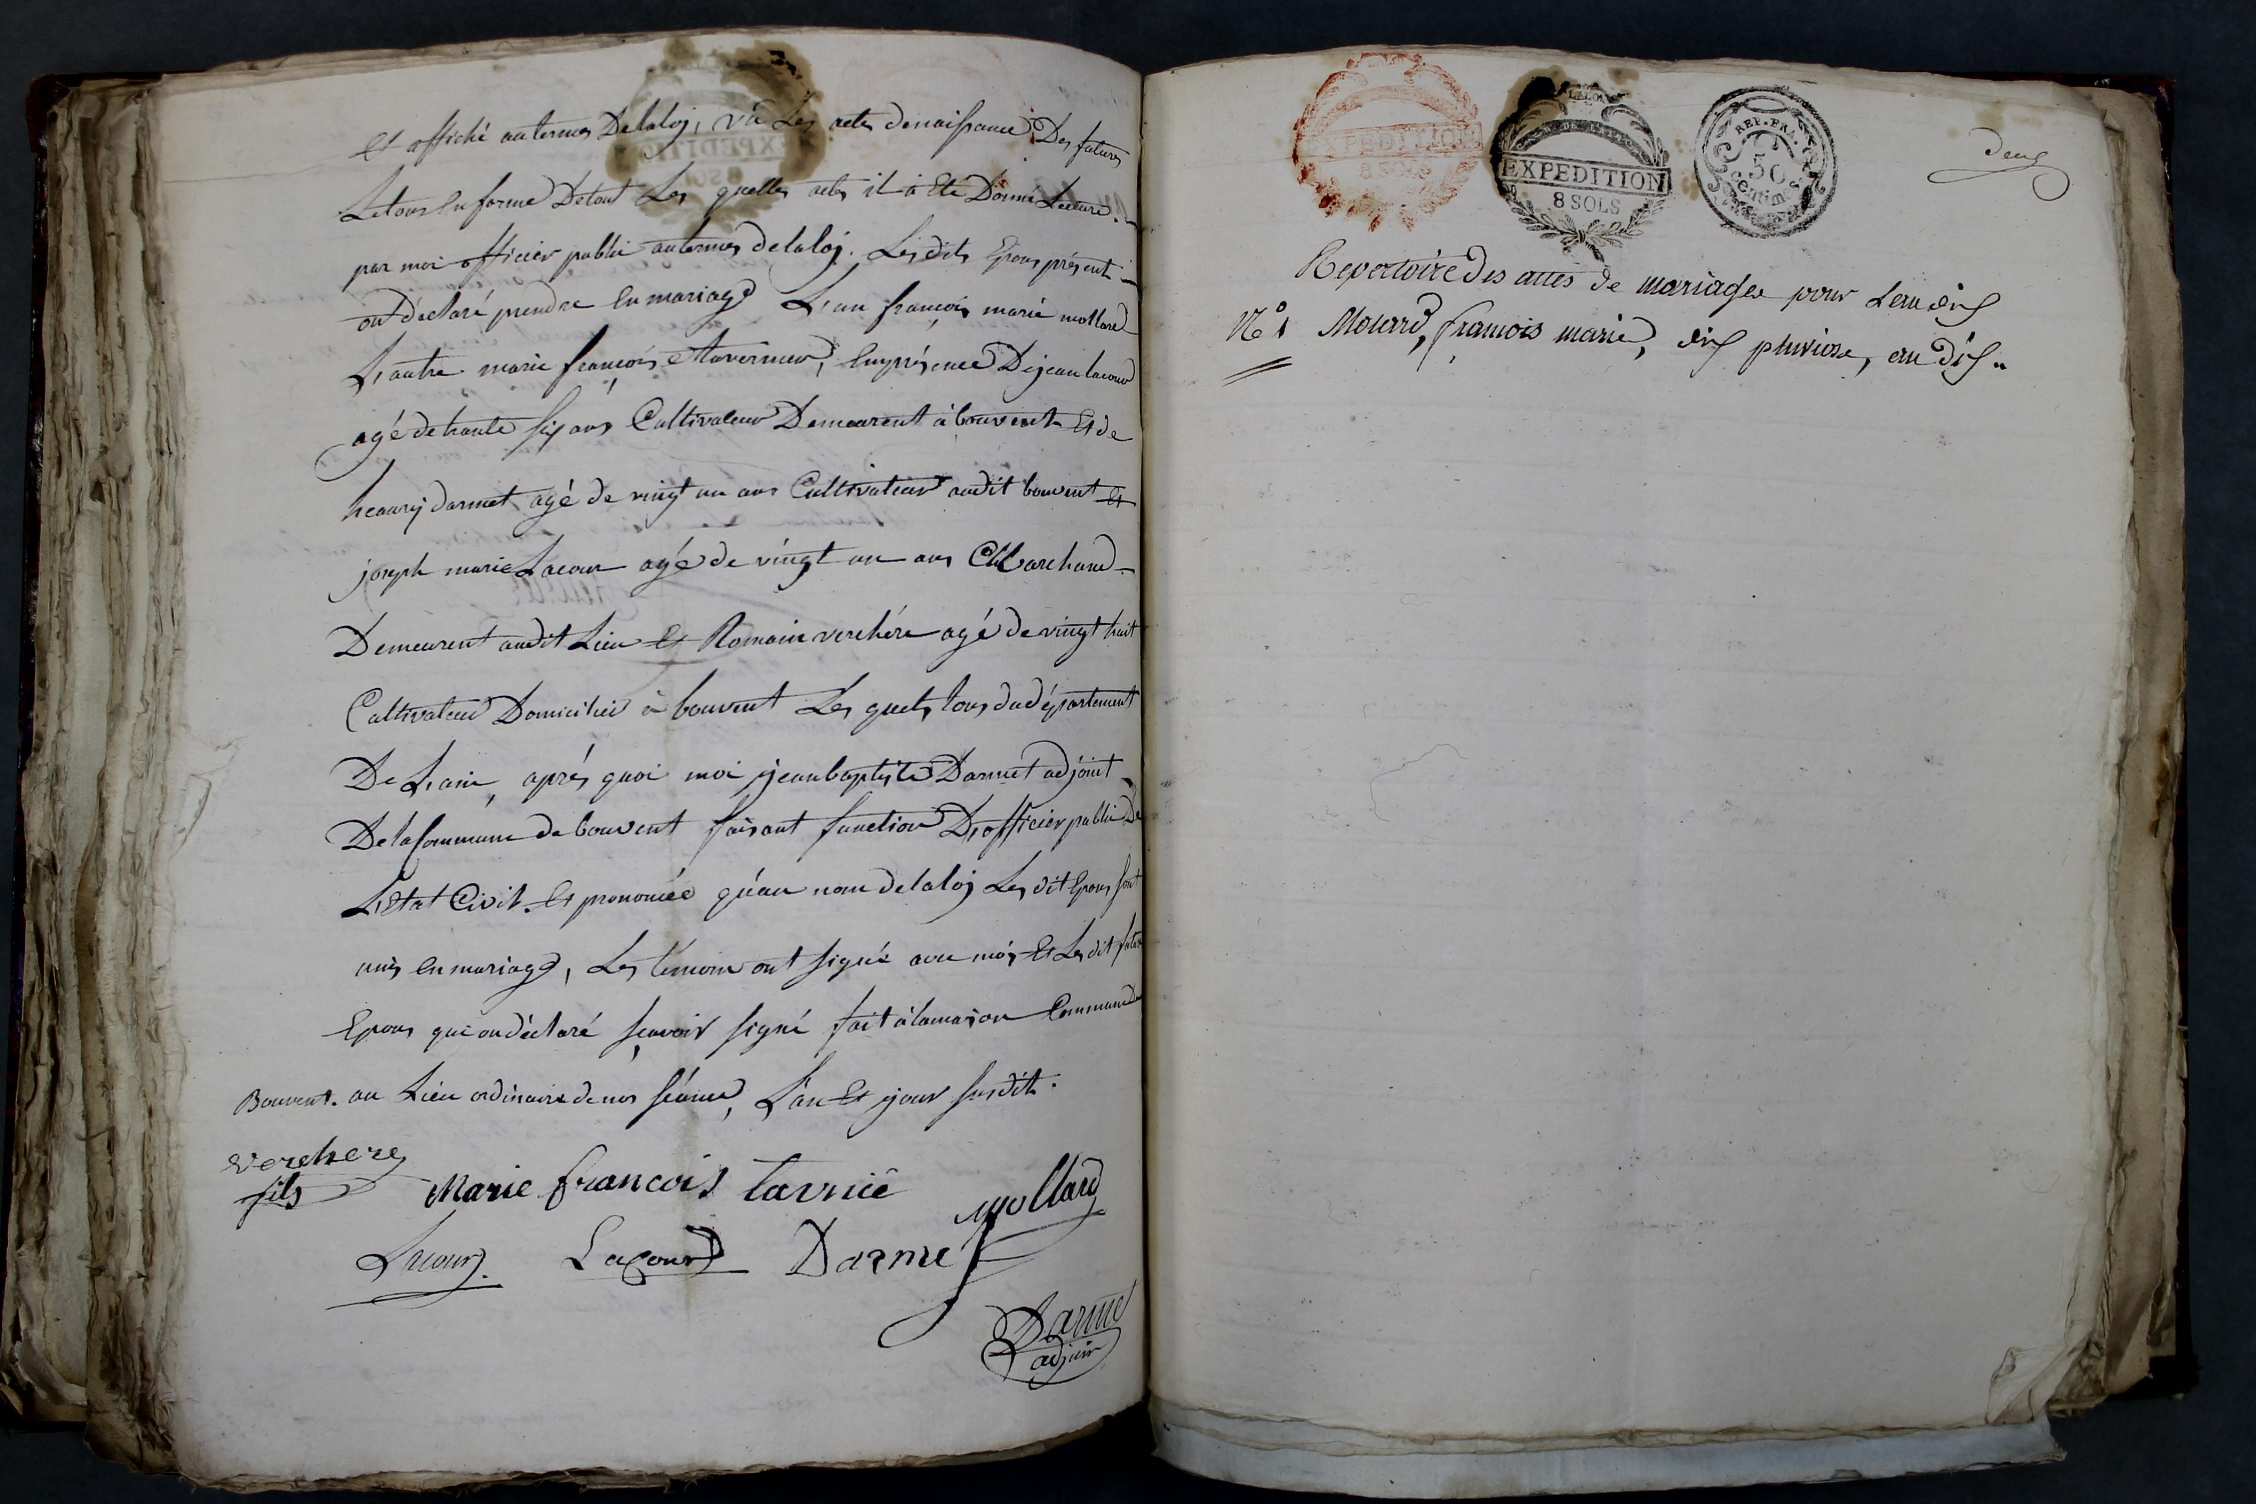 et affiché au termes De la loj, vu Les actes de naissance Des futures
Le tous en forme De tout Les quelles actes il à Eté Donné Lecture.
par moi officier public au termes de la loj. Les dits Epous présent
ont déclaré prendre en mariage L'un françois marie mollard
L'autre marie françoise tavernier, en présence De jean lacour
agé de trante six ans Cultivateur Demeurent à bouvent et de
heanrij darmet agé de vingt un ans Cultivateur audit bouvent et
joseph marie Lacour agé de vingt un ans Marchand
Demeurent audit Lieu et Romain verchére agé de vingt huit
Cultivateur Domicilié à bouvent Les quels tous du département
De L'ain, aprés quoi moi jean baptiste Darmet adjoint
De la Commune de bouvent faisant function D'officier public De
L'Etat Civil. et prononcée qu'au nom de la loj Les dit Epous sont
unis en mariage, Les témoin ont signé avec moi et Les dit futur
Epous qui on déclaré sçavoir signé fait à la maison Commune De
Bouvent. au Lieu ordinaire de nos séance, L'an et jour susdit.
verchere
fils
Marie francois tavnié
mollard
Lacour.
Lacour
Darmet
Darmet
adjoin
EXPEDITION
8 SOLS
EXPEDITION
8 SOLS
REP. FRA.
50
centim
deux
Repertoire des actes de mariages pour l'an dix
N.º 1 Molard, françois marie, dix pluviose, an dix.